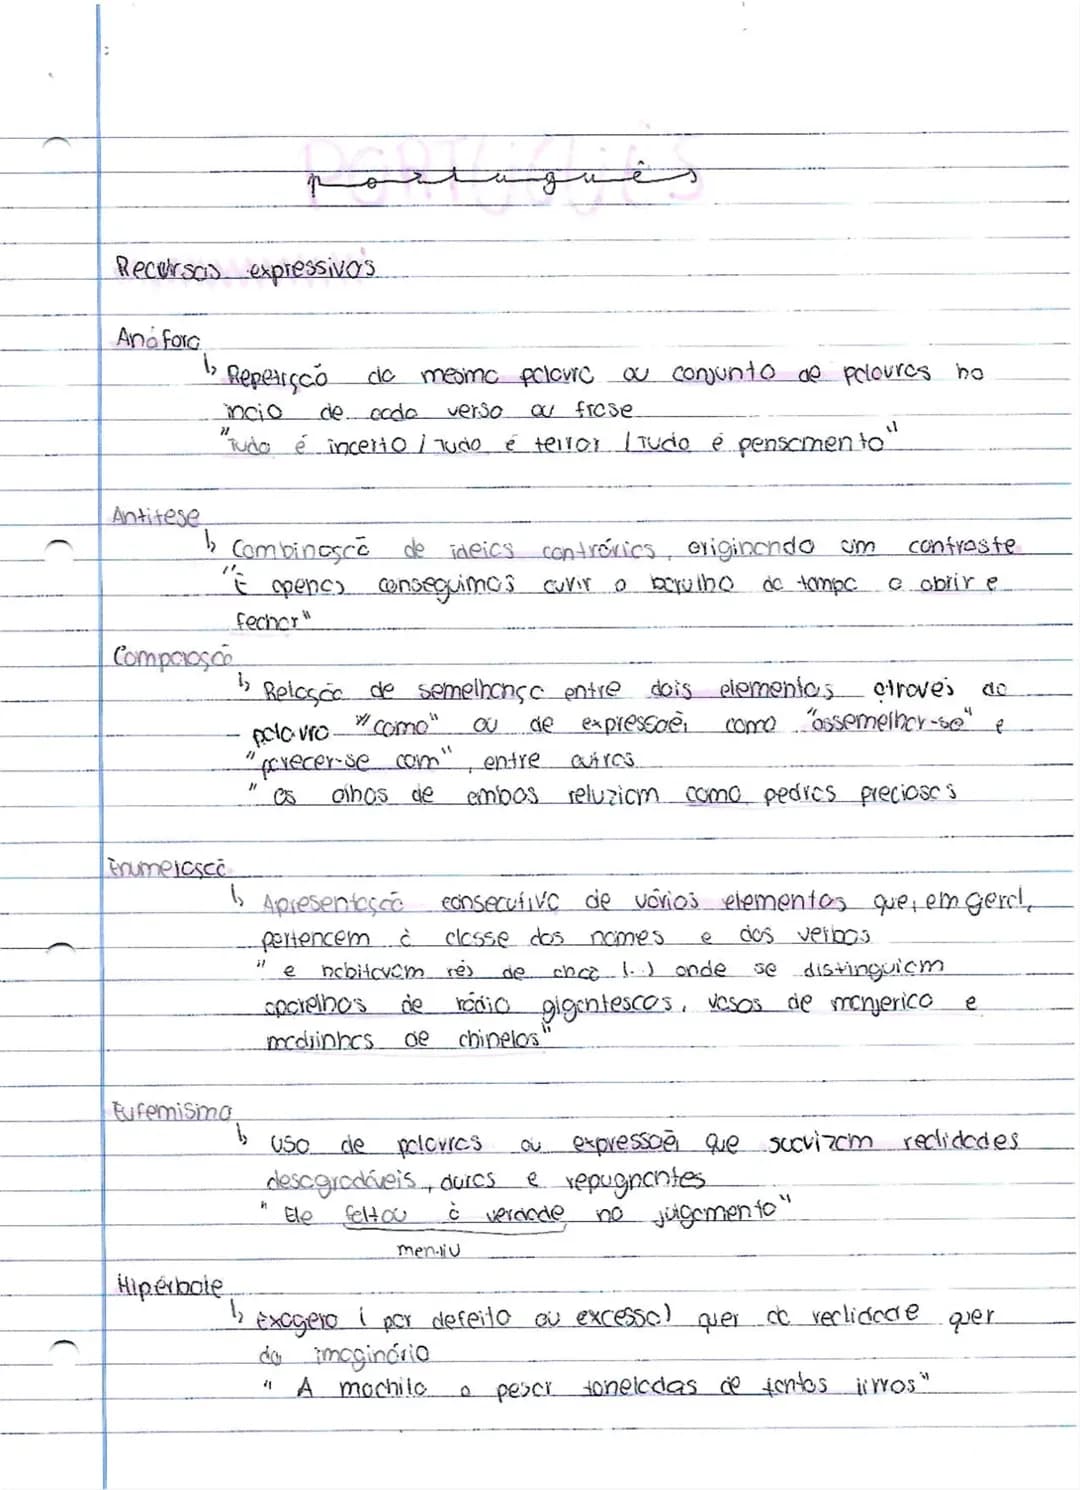 português
Recursos expressivos
Anáfora
↳ Repetição da mesma palavra ou conjunto de palavras no
início de cada verso ou frase
"Tudo é incerto / Tudo é terror / Tudo é pensamento"
Antítese
↳ Combinação de ideias contrárias, originando um contraste
"E apenas conseguimos ouvir o barulho da tampa a abrir e
fechar"
Comparação
↳ Relação de semelhança entre dois elementos através da
palavra "como" ou de expressões como "assemelhar-se" e
"parecer-se com", entre outras
"os olhos de ambos reluziam como pedras preciosas
Enumeração
↳ Apresentação consecutiva de vários elementos que, em geral,
pertencem à classe dos nomes e dos verbos
"e habitavam rés de chão (..) onde se distinguiam
aparelhos de rádio gigantescos, vasos de manjerico e
de chinelos"
Eufemismo
↳ Uso de palavras ou expressões que suavizam realidades
desagradáveis, duras e repugnantes
"Ele faltou à verdade no julgamento"
mentiu
Hipérbole
↳ Exagero (por defeito ou excesso) quer da realidade quer
do imaginário
"A mochila a pesar toneladas de tantos livros"